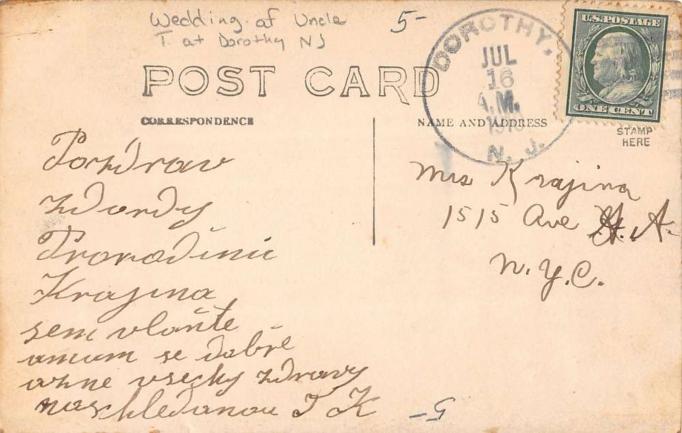 Wedding of Uncle
T. at Dorothy NJ
5-
DOROTHY,
JUL
16
A.M.
N. J.
U.S. POSTAGE
ONE CENT
POST CARD
CORRESPONDENCE
NAME AND ADDRESS
STAMP
HERE
Pozdrav
z Dordy
Pro rodinu
Krajina
sem vlaňte
a mam se dobře
vsecky zdravy
naschledanou T K
-5
Mrs Krajina
1515 Ave A.
N.Y.C.